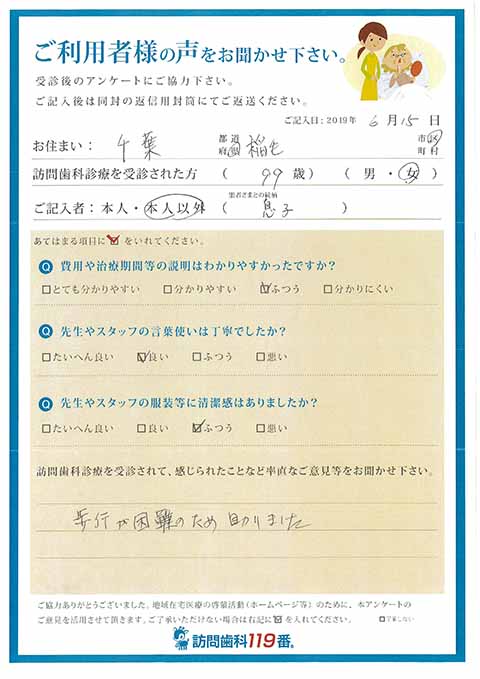 ご利用者様の声をお聞かせ下さい。
受診後のアンケートにご協力下さい。
ご記入後は同封の返信用封筒にてご返送ください。
ご記入日：2019年 6月15日
お住まい： 千葉 都道府県 稲毛 市区町村
訪問歯科診療を受診された方 （ 99 歳） （ 男・女 ）
患者さまとの続柄
ご記入者：本人・本人以外 （ 息子 ）
あてはまる項目に☑をいれてください。
Q 費用や治療期間等の説明はわかりやすかったですか？
□とても分かりやすい □分かりやすい ☑ふつう □分かりにくい
Q 先生やスタッフの言葉使いは丁寧でしたか？
□たいへん良い ☑良い □ふつう □悪い
Q 先生やスタッフの服装等に清潔感はありましたか？
□たいへん良い □良い ☑ふつう □悪い
訪問歯科診療を受診されて、感じられたことなど率直なご意見等をお聞かせ下さい。
歩行が困難のため助かりました
ご協力ありがとうございました。地域在宅医療の啓蒙活動（ホームページ等）のために、本アンケートの
ご意見を活用させて頂きます。ご了承いただけない場合は右記に☑を入れてください。 □了承しない
訪問歯科119番。